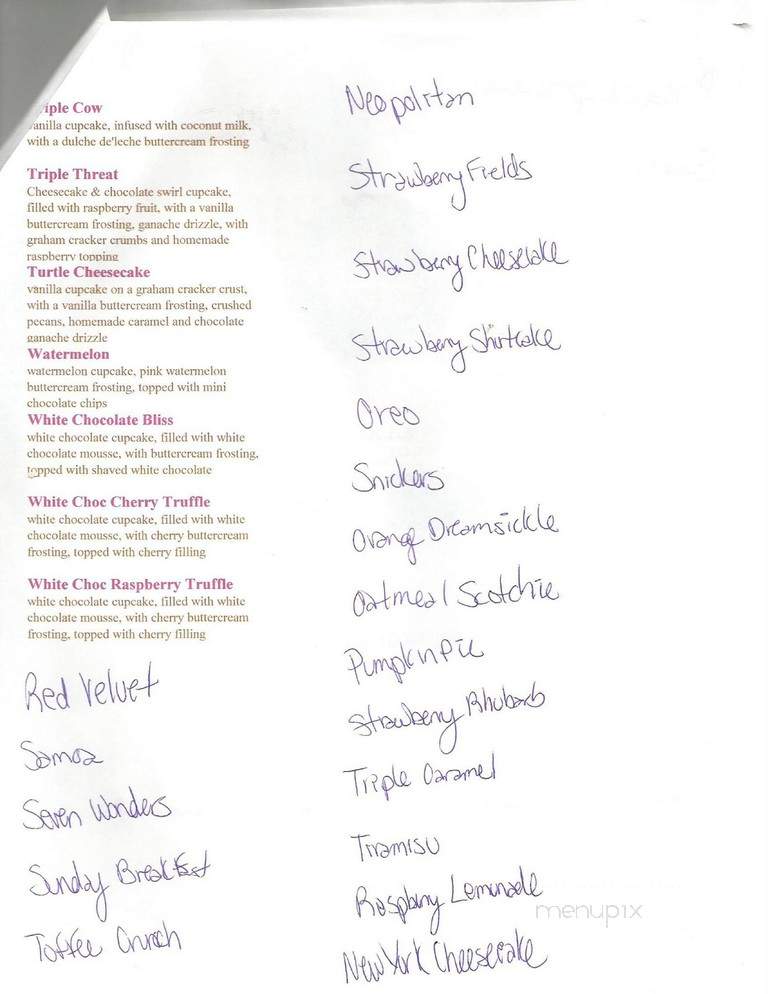 iple Cow
vanilla cupcake, infused with coconut milk,
with a dulche de'leche buttercream frosting
Triple Threat
Cheesecake & chocolate swirl cupcake,
filled with raspberry fruit, with a vanilla
buttercream frosting, ganache drizzle, with
graham cracker crumbs and homemade
raspberry topping
Turtle Cheesecake
vanilla cupcake on a graham cracker crust,
with a vanilla buttercream frosting, crushed
pecans, homemade caramel and chocolate
ganache drizzle
Watermelon
watermelon cupcake, pink watermelon
buttercream frosting, topped with mini
chocolate chips
White Chocolate Bliss
white chocolate cupcake, filled with white
chocolate mousse, with buttercream frosting,
topped with shaved white chocolate
White Choc Cherry Truffle
white chocolate cupcake, filled with white
chocolate mousse, with cherry buttercream
frosting, topped with cherry filling
White Choc Raspberry Truffle
white chocolate cupcake, filled with white
chocolate mousse, with cherry buttercream
frosting, topped with cherry filling
Red Velvet
Samoa
Seven Wonders
Sunday Breakfast
Toffee Crunch
Neopolitan
Strawberry Fields
Strawberry Cheesecake
Strawberry Shortcake
Oreo
Snickers
Orange Dreamsickle
Oatmeal Scotchie
Pumpkin Pie
Strawberry Rhubarb
Triple Caramel
Tiramisu
Raspberry Lemonade
New York Cheesecake
menupix